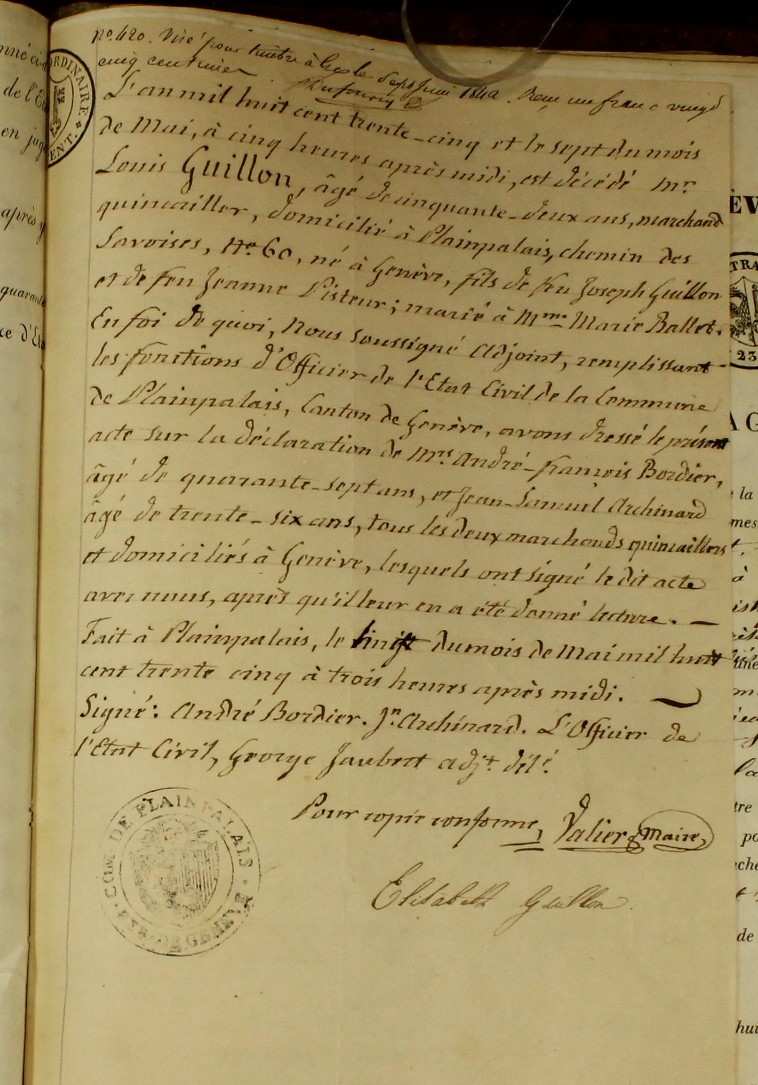 no. 420. Visé pour timbre à Gex le sept juin 1842. Reçu un franc vingt
cinq centimes
L'an mil huit cent trente-cinq et le sept du mois
de Mai, à cinq heures après midi, est décédé Mr.
Louis Guillon, âgé de cinquante-deux ans, marchand
quincailler, domicilié à Plainpalais, chemin des
Savoises, No. 60, né à Genève, fils de feu Joseph Guillon
et de feu Jeanne Pisteur; marié à Mme. Marie Ballet.
En foi de quoi, Nous soussigné Adjoint, remplissant
les fonctions d'Officier de l'Etat Civil de la Commune
de Plainpalais, Canton de Genève, avons dressé le présent
acte sur la déclaration de Mrs. André-François Bordier,
âgé de quarante-sept ans, et Jean-Samuel Archinard
âgé de trente-six ans, tous les deux marchands quincaillers
et domiciliés à Genève, lesquels ont signé le dit acte
avec nous, après qu'il leur en a été donné lecture. —
Fait à Plainpalais, le du mois de Mai mil huit
cent trente cinq à trois heures après midi. —
Signé: André Bordier. Jn. Archinard. L'Officier de
l'Etat Civil, George Jaubert adjt. dél.
Pour copie conforme, Valier Maire
Elisabeth Guillon
COM. DE PLAINPALAIS
DE GENEVE